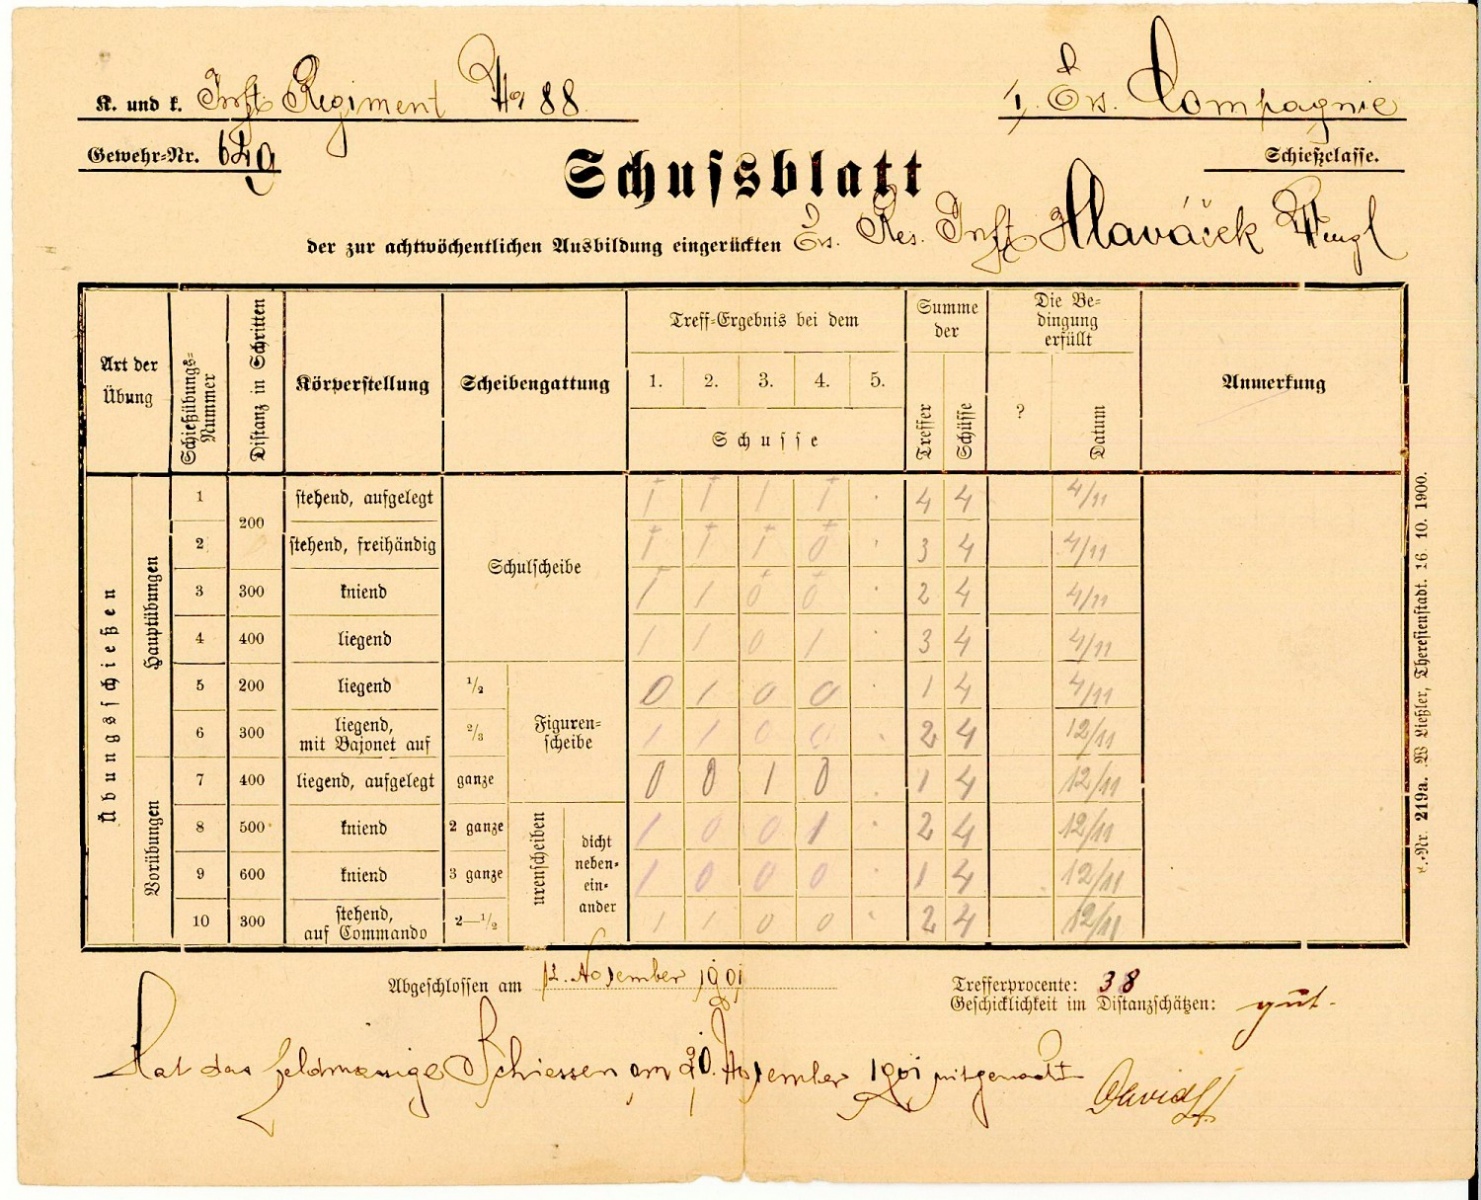 K. und k. Inft Regiment No 88
I. Ers. Compagnie
Gewehr-Nr. 649
Schießclasse.
Schussblatt
der zur achtwöchentlichen Ausbildung eingerückten Ers. Res. Inft Hlaváček
Art der Übung
Schießübungs-Nummer
Distanz in Schritten
Körperstellung
Scheibengattung
Treff-Ergebnis bei dem
1. 2. 3. 4. 5.
Schusse
Summe der
Treffer
Schüsse
Die Be-
dingung
erfüllt
?
Datum
Anmerkung
Übungsschießen
Hauptübungen
Vorübungen
Schulscheibe
Figuren-
scheibe
urenscheiben
dicht
neben-
ein-
ander
1 200 stehend, aufgelegt 1 1 1 1 · 4 4 4/11
2 stehend, freihändig 1 1 1 0 · 3 4 4/11
3 300 kniend 1 1 0 0 · 2 4 4/11
4 400 liegend 1 1 0 1 · 3 4 4/11
5 200 liegend 1/2 0 1 0 0 · 1 4 4/11
6 300 liegend, mit Bajonet auf 2/3 1 1 0 0 · 2 4 12/11
7 400 liegend, aufgelegt ganze 0 0 1 0 · 1 4 12/11
8 500 kniend 2 ganze 1 0 0 1 · 2 4 12/11
9 600 kniend 3 ganze 1 0 0 0 · 1 4 12/11
10 300 stehend, auf Commando 2—1/2 1 1 0 0 · 2 4 12/11
Nr. 219a. W Ließler, Theresienstadt. 16. 10. 1900.
Abgeschlossen am 12. November 1901
Trefferprocente: 38
Geschicklichkeit im Distanzschätzen: gut.
Hat das feldmässige Schiessen am 20. November 1901 mitgemacht
David